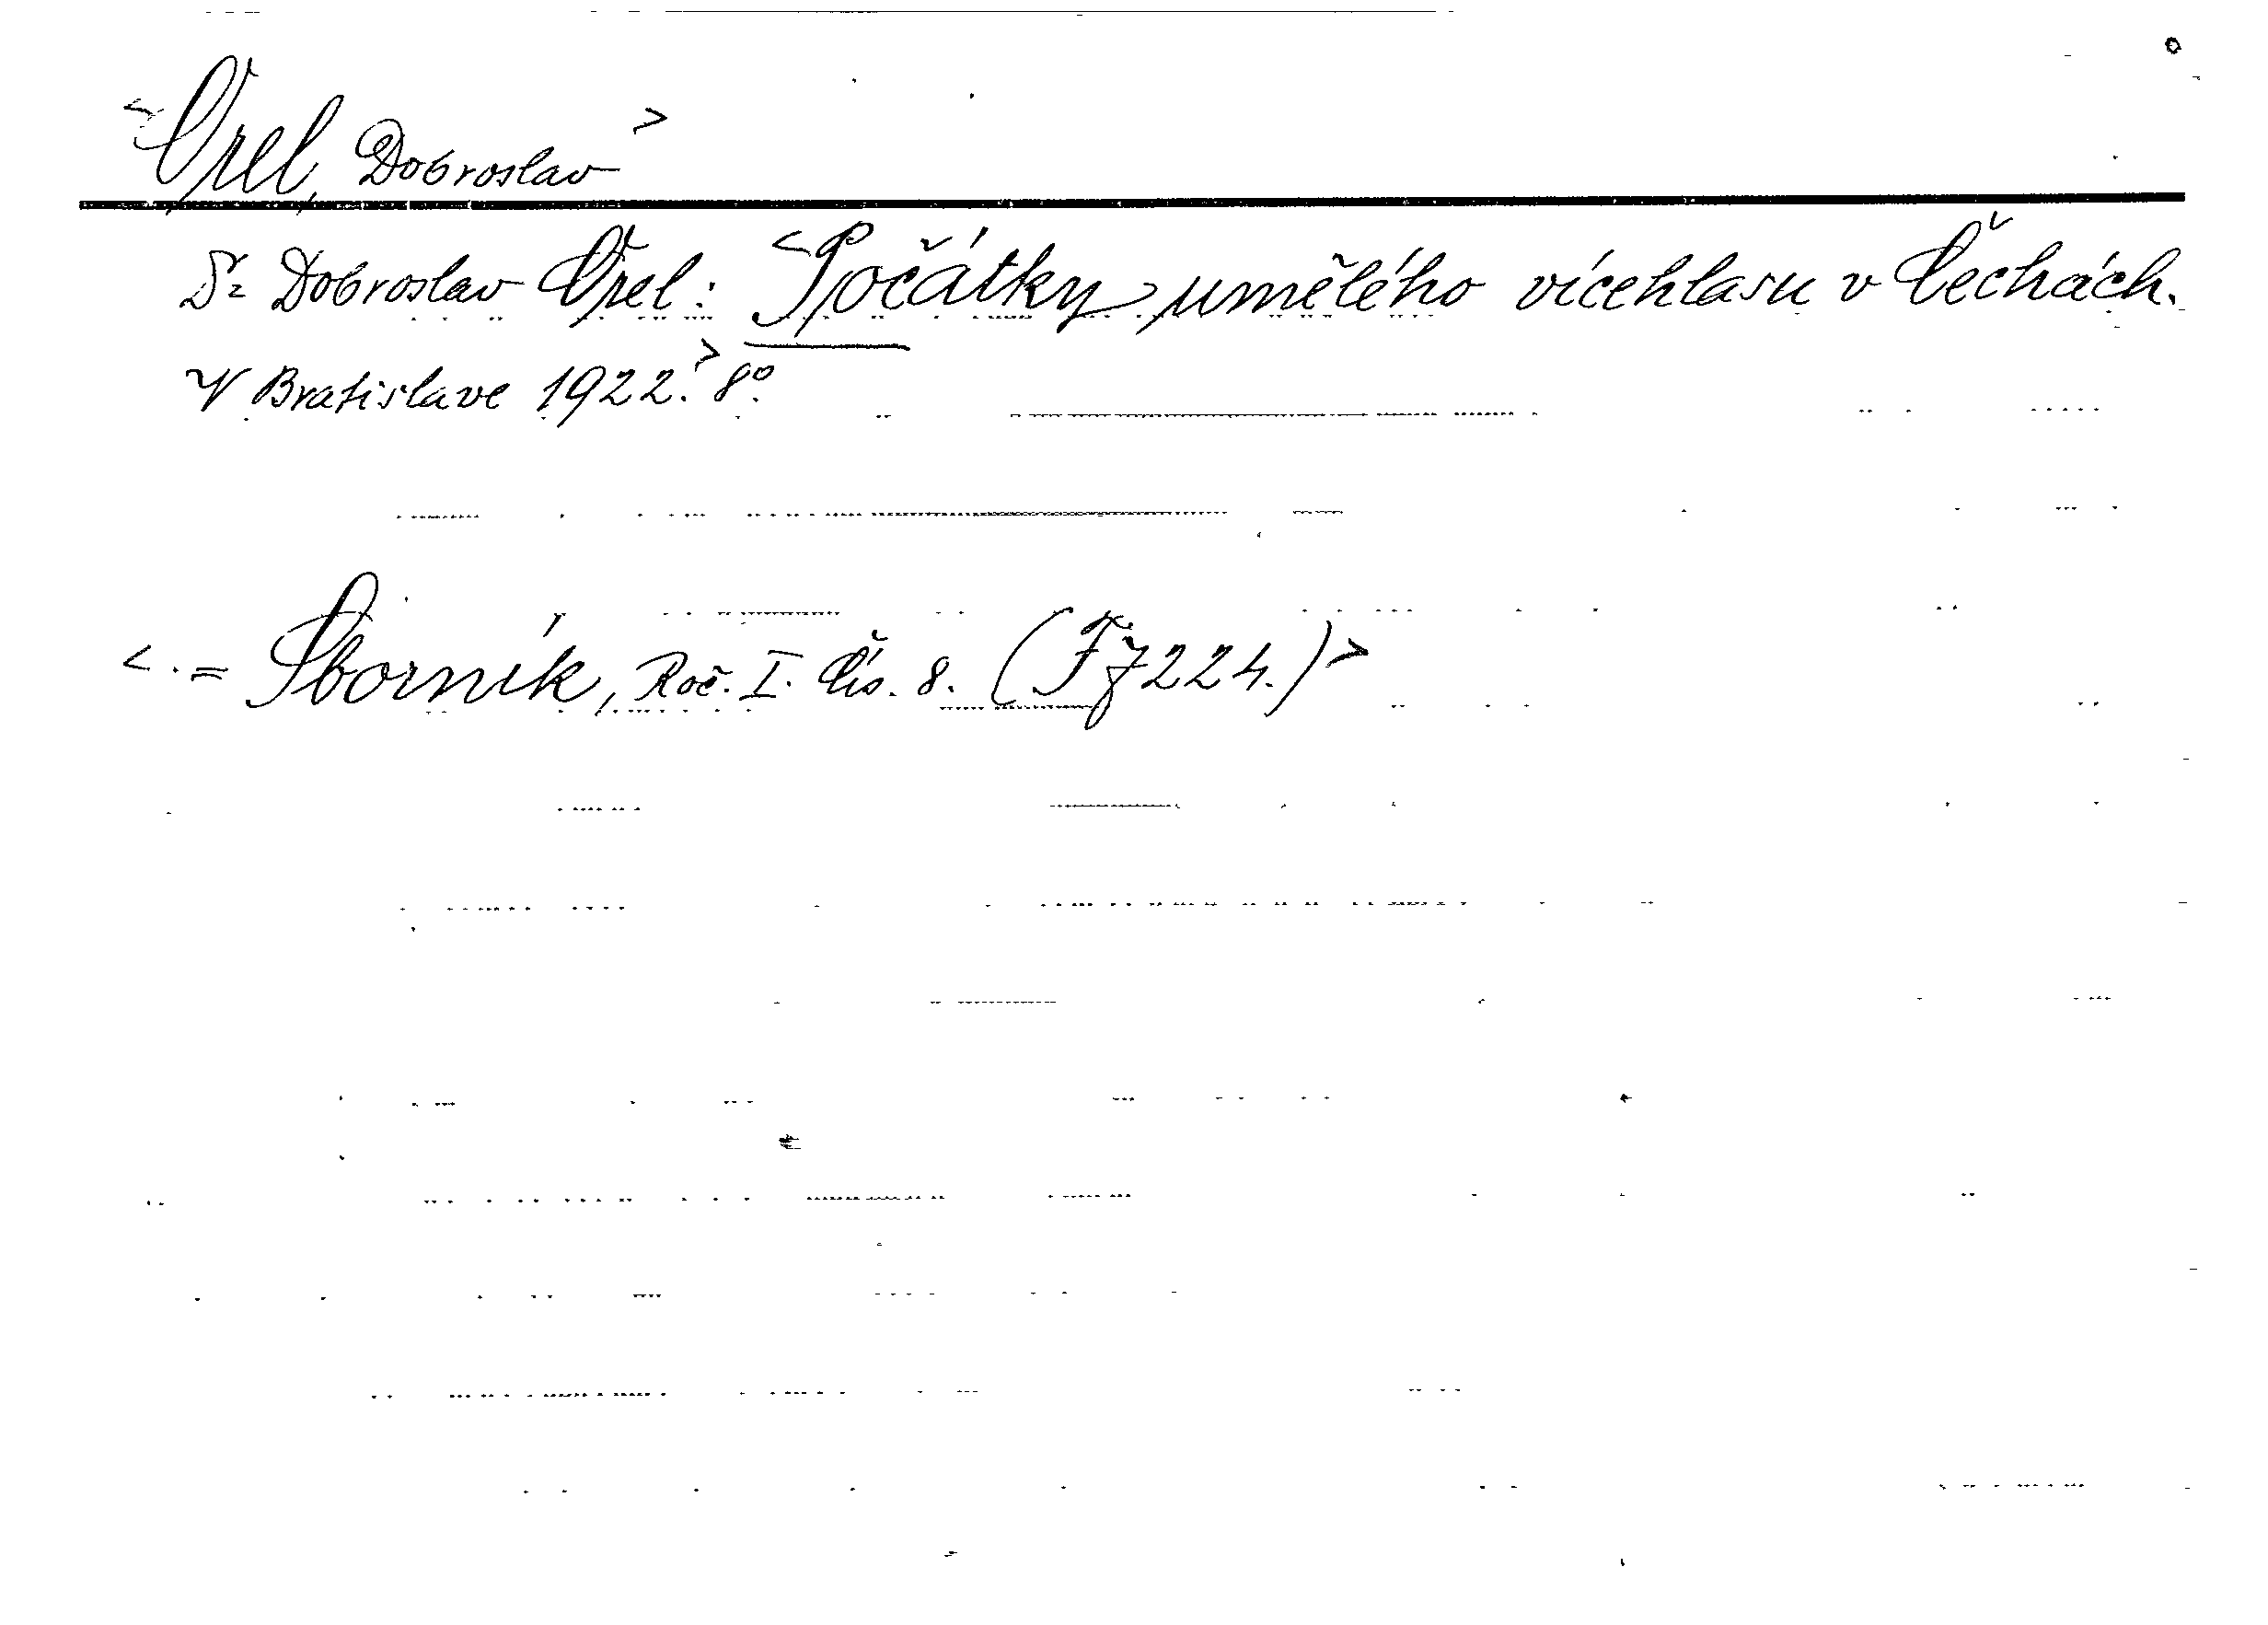 <Orel, Dobroslav>
Dr Dobroslav Orel: <Počátky umělého vícehlasu v Čechách.
V Bratislave 1922.> 8°.
<.= Sborník, Roč. I. Čís. 8. (Fž 224.)>